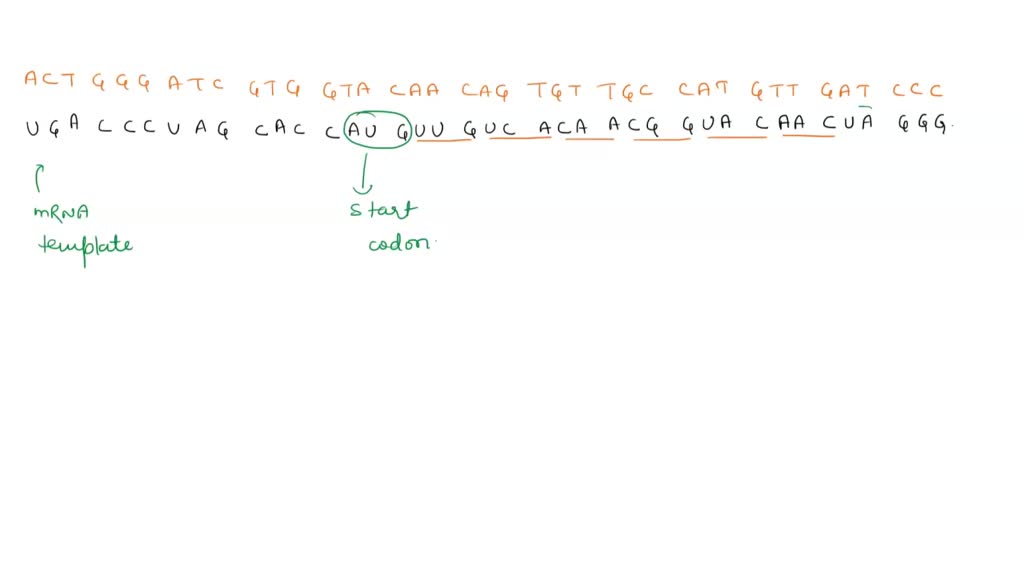 ACT GGG ATC GTG GTA CAA CAG TGT TGC CAT GTT GAT CCC
UGA CCC UAG CAC CAU GUU GUC ACA ACG GUA CAA CUA GGG.
mRNA template
start codon.